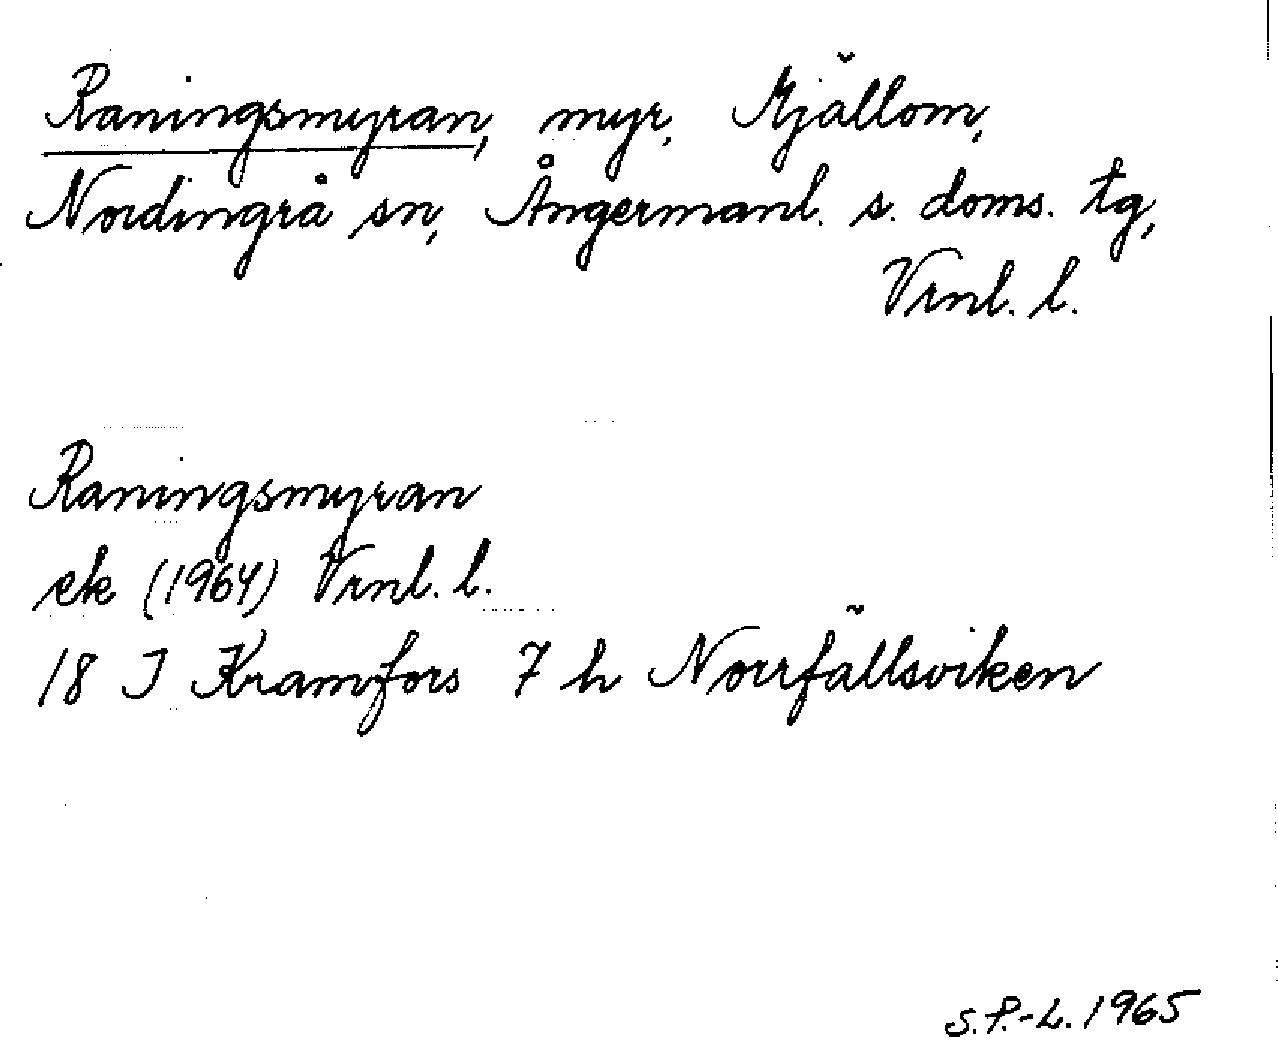 Raningsmyran, myr, Mjällom,
Nordingrå sn, Ångermanl. s. doms. tg,
Vrnl. l.
Raningsmyran
ek (1964) Vrnl. l.
18 J Kramfors 7 h Norrfällsviken
S.P.-L. 1965